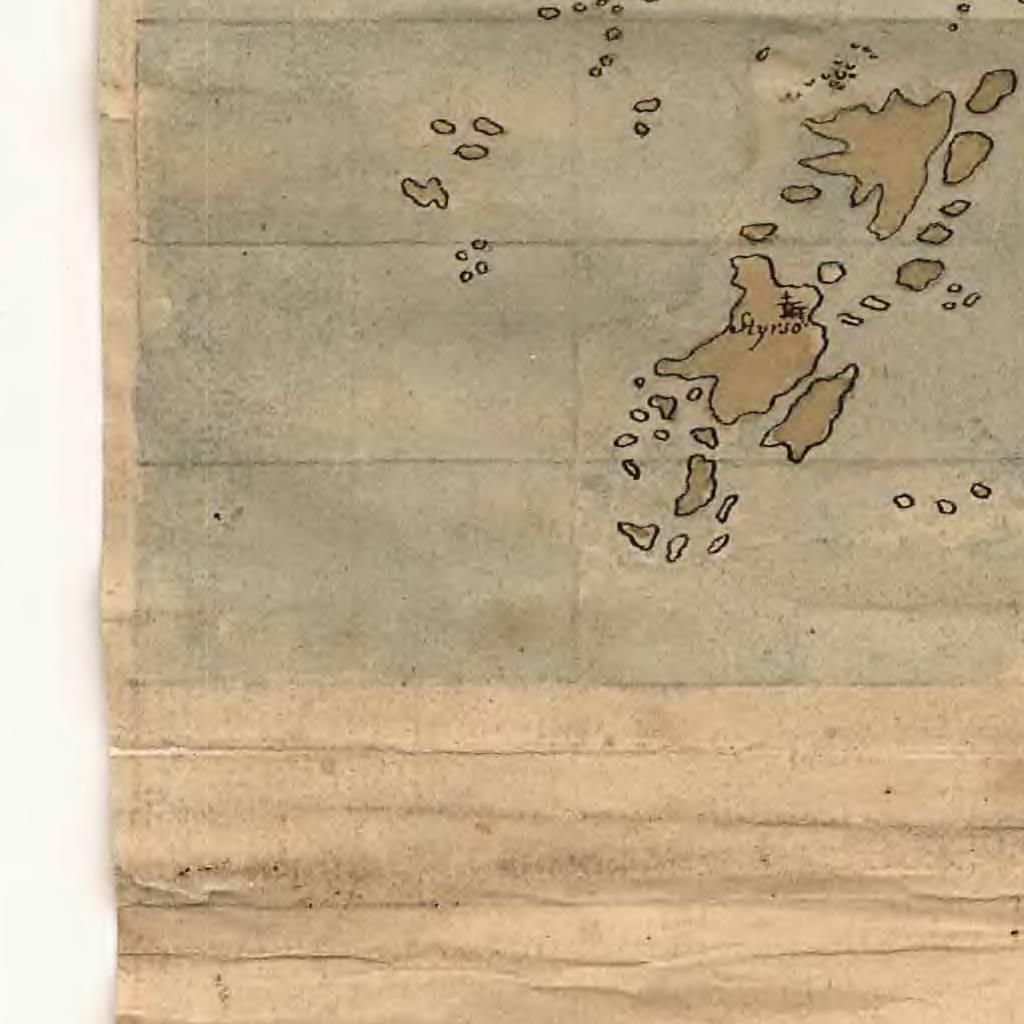 Styrsö